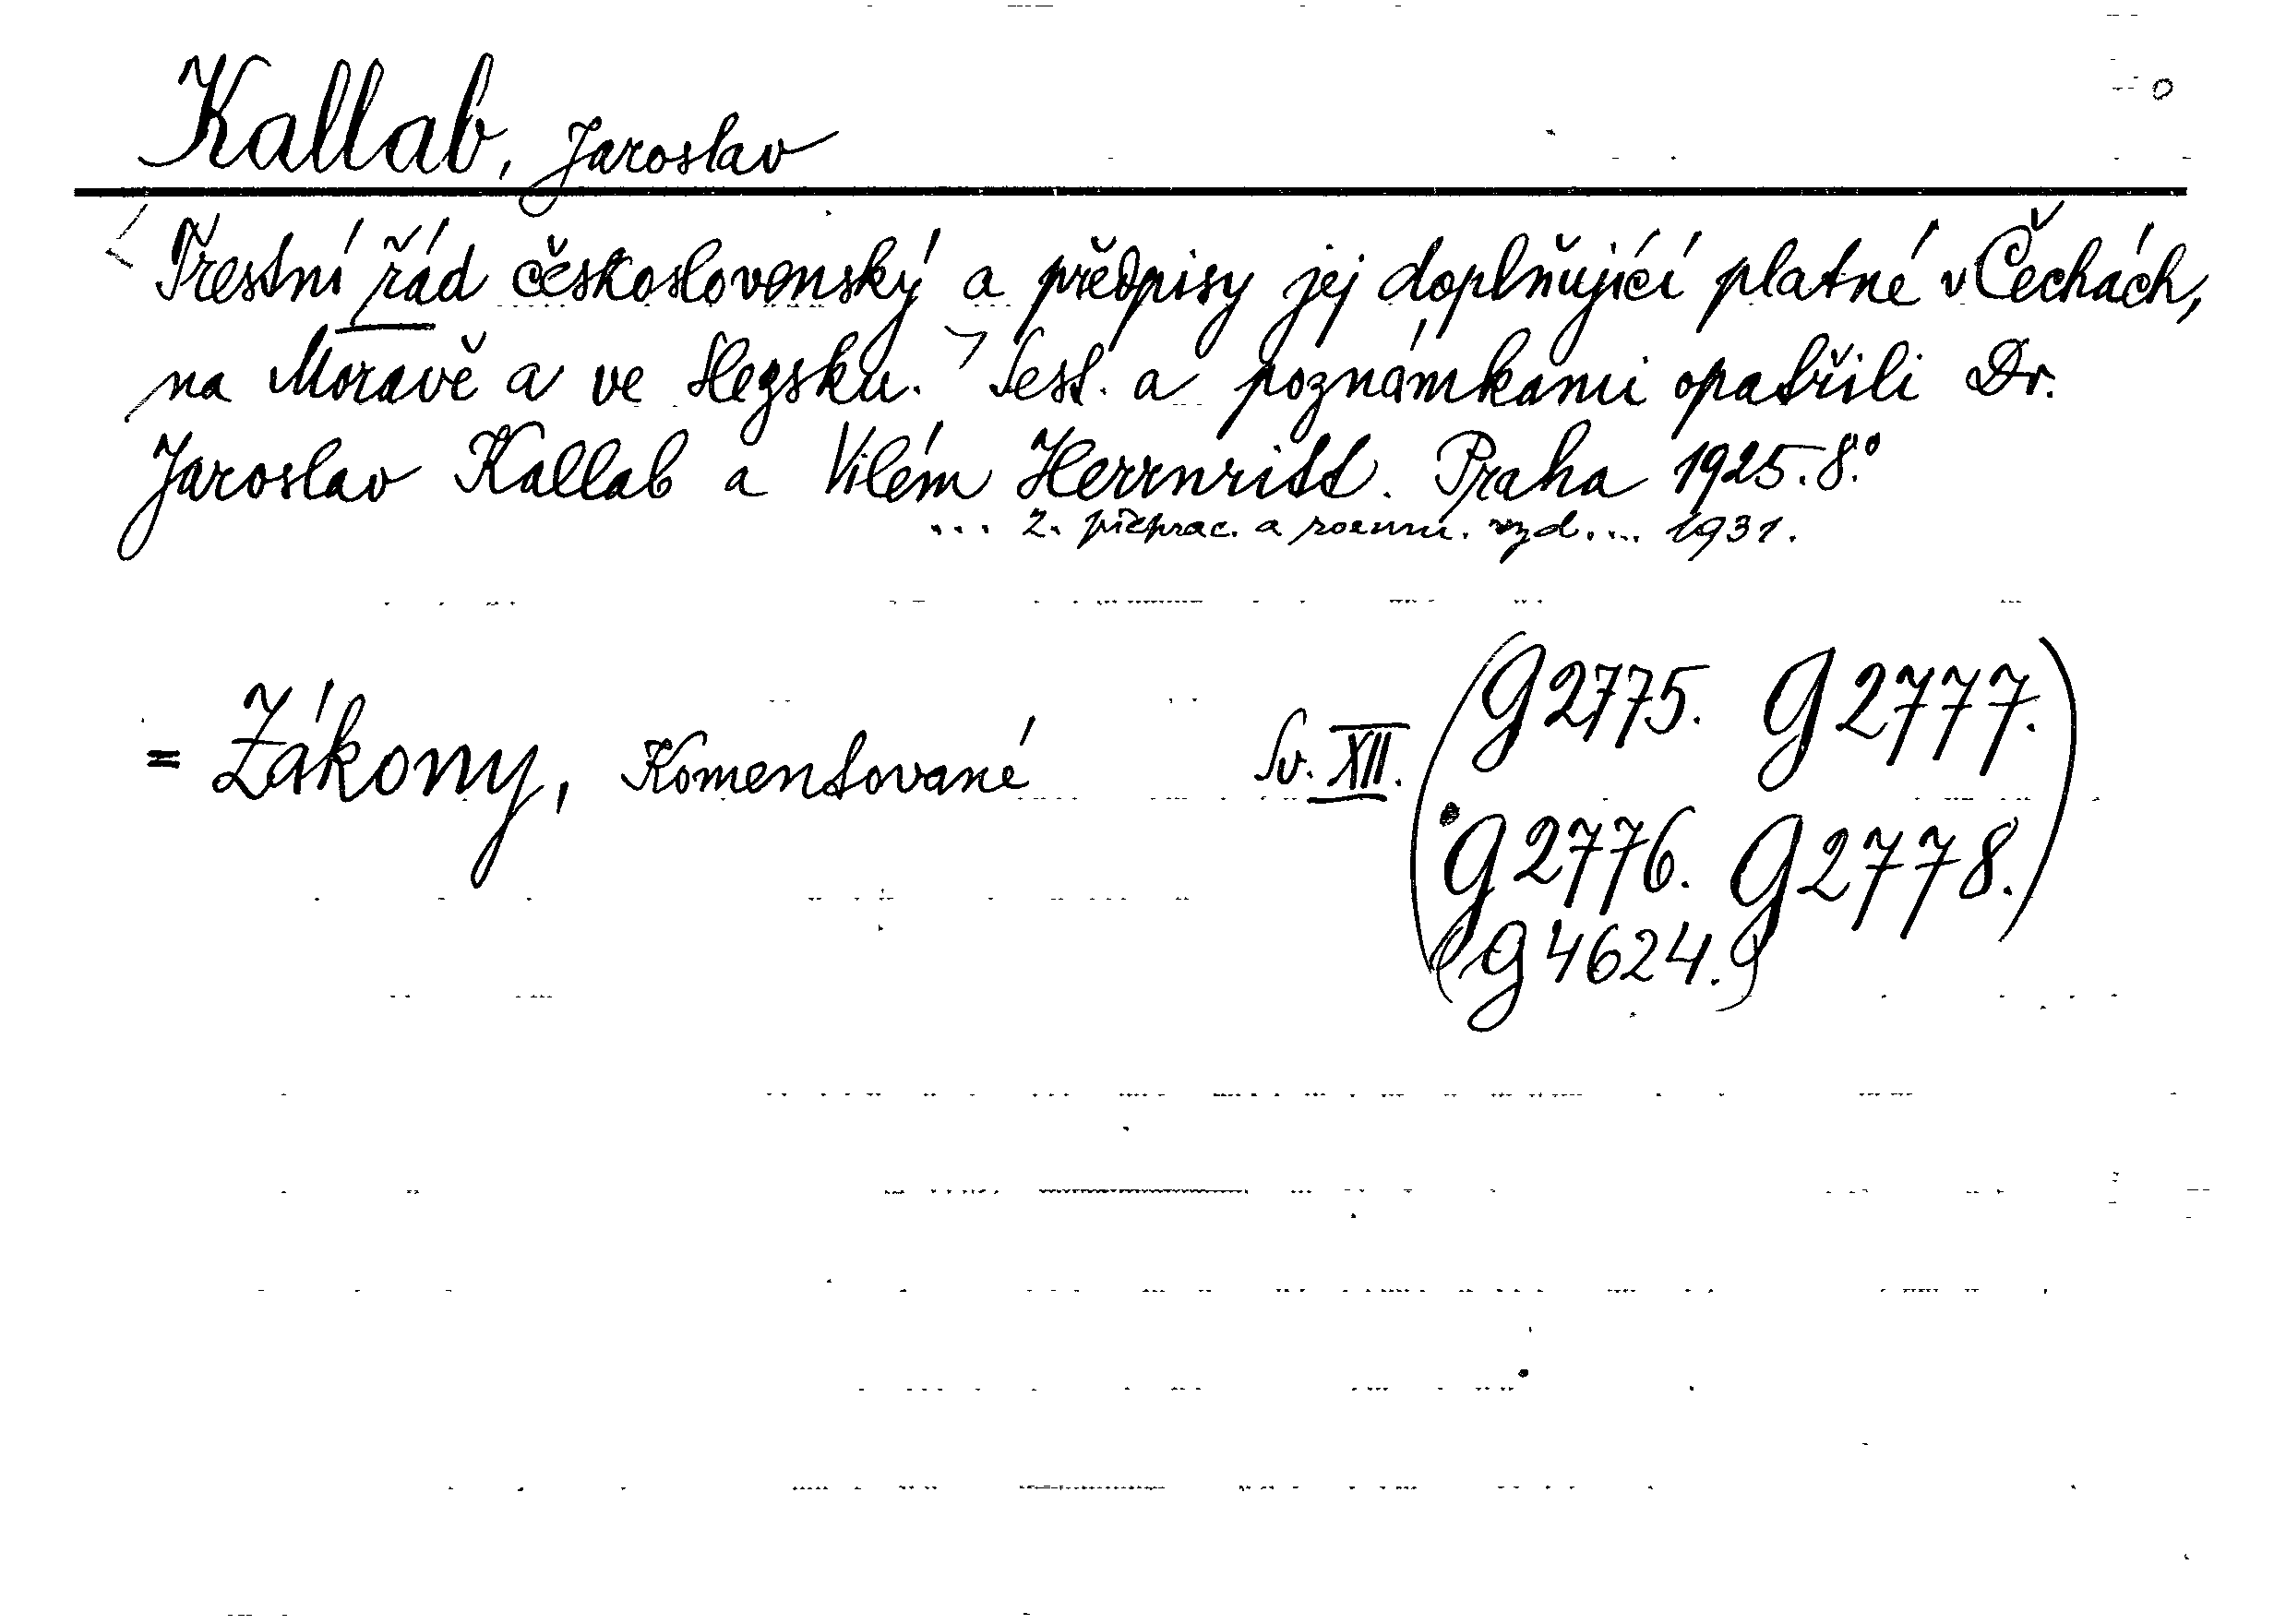 Kallab, Jaroslav
Trestní řád československý a předpisy jej doplňující platné v Čechách,
na Moravě a ve Slezsku. Sest. a poznámkami opatřili Dr.
Jaroslav Kallab a Vilém Herrnritt. Praha 1925. 8.°
... 2. přeprac. a rozmn. vyd. ... 1931.
= Zákony, Komentované Sv. XII. (G2775. G2777.
G2776. G2778.)
(G4624.)